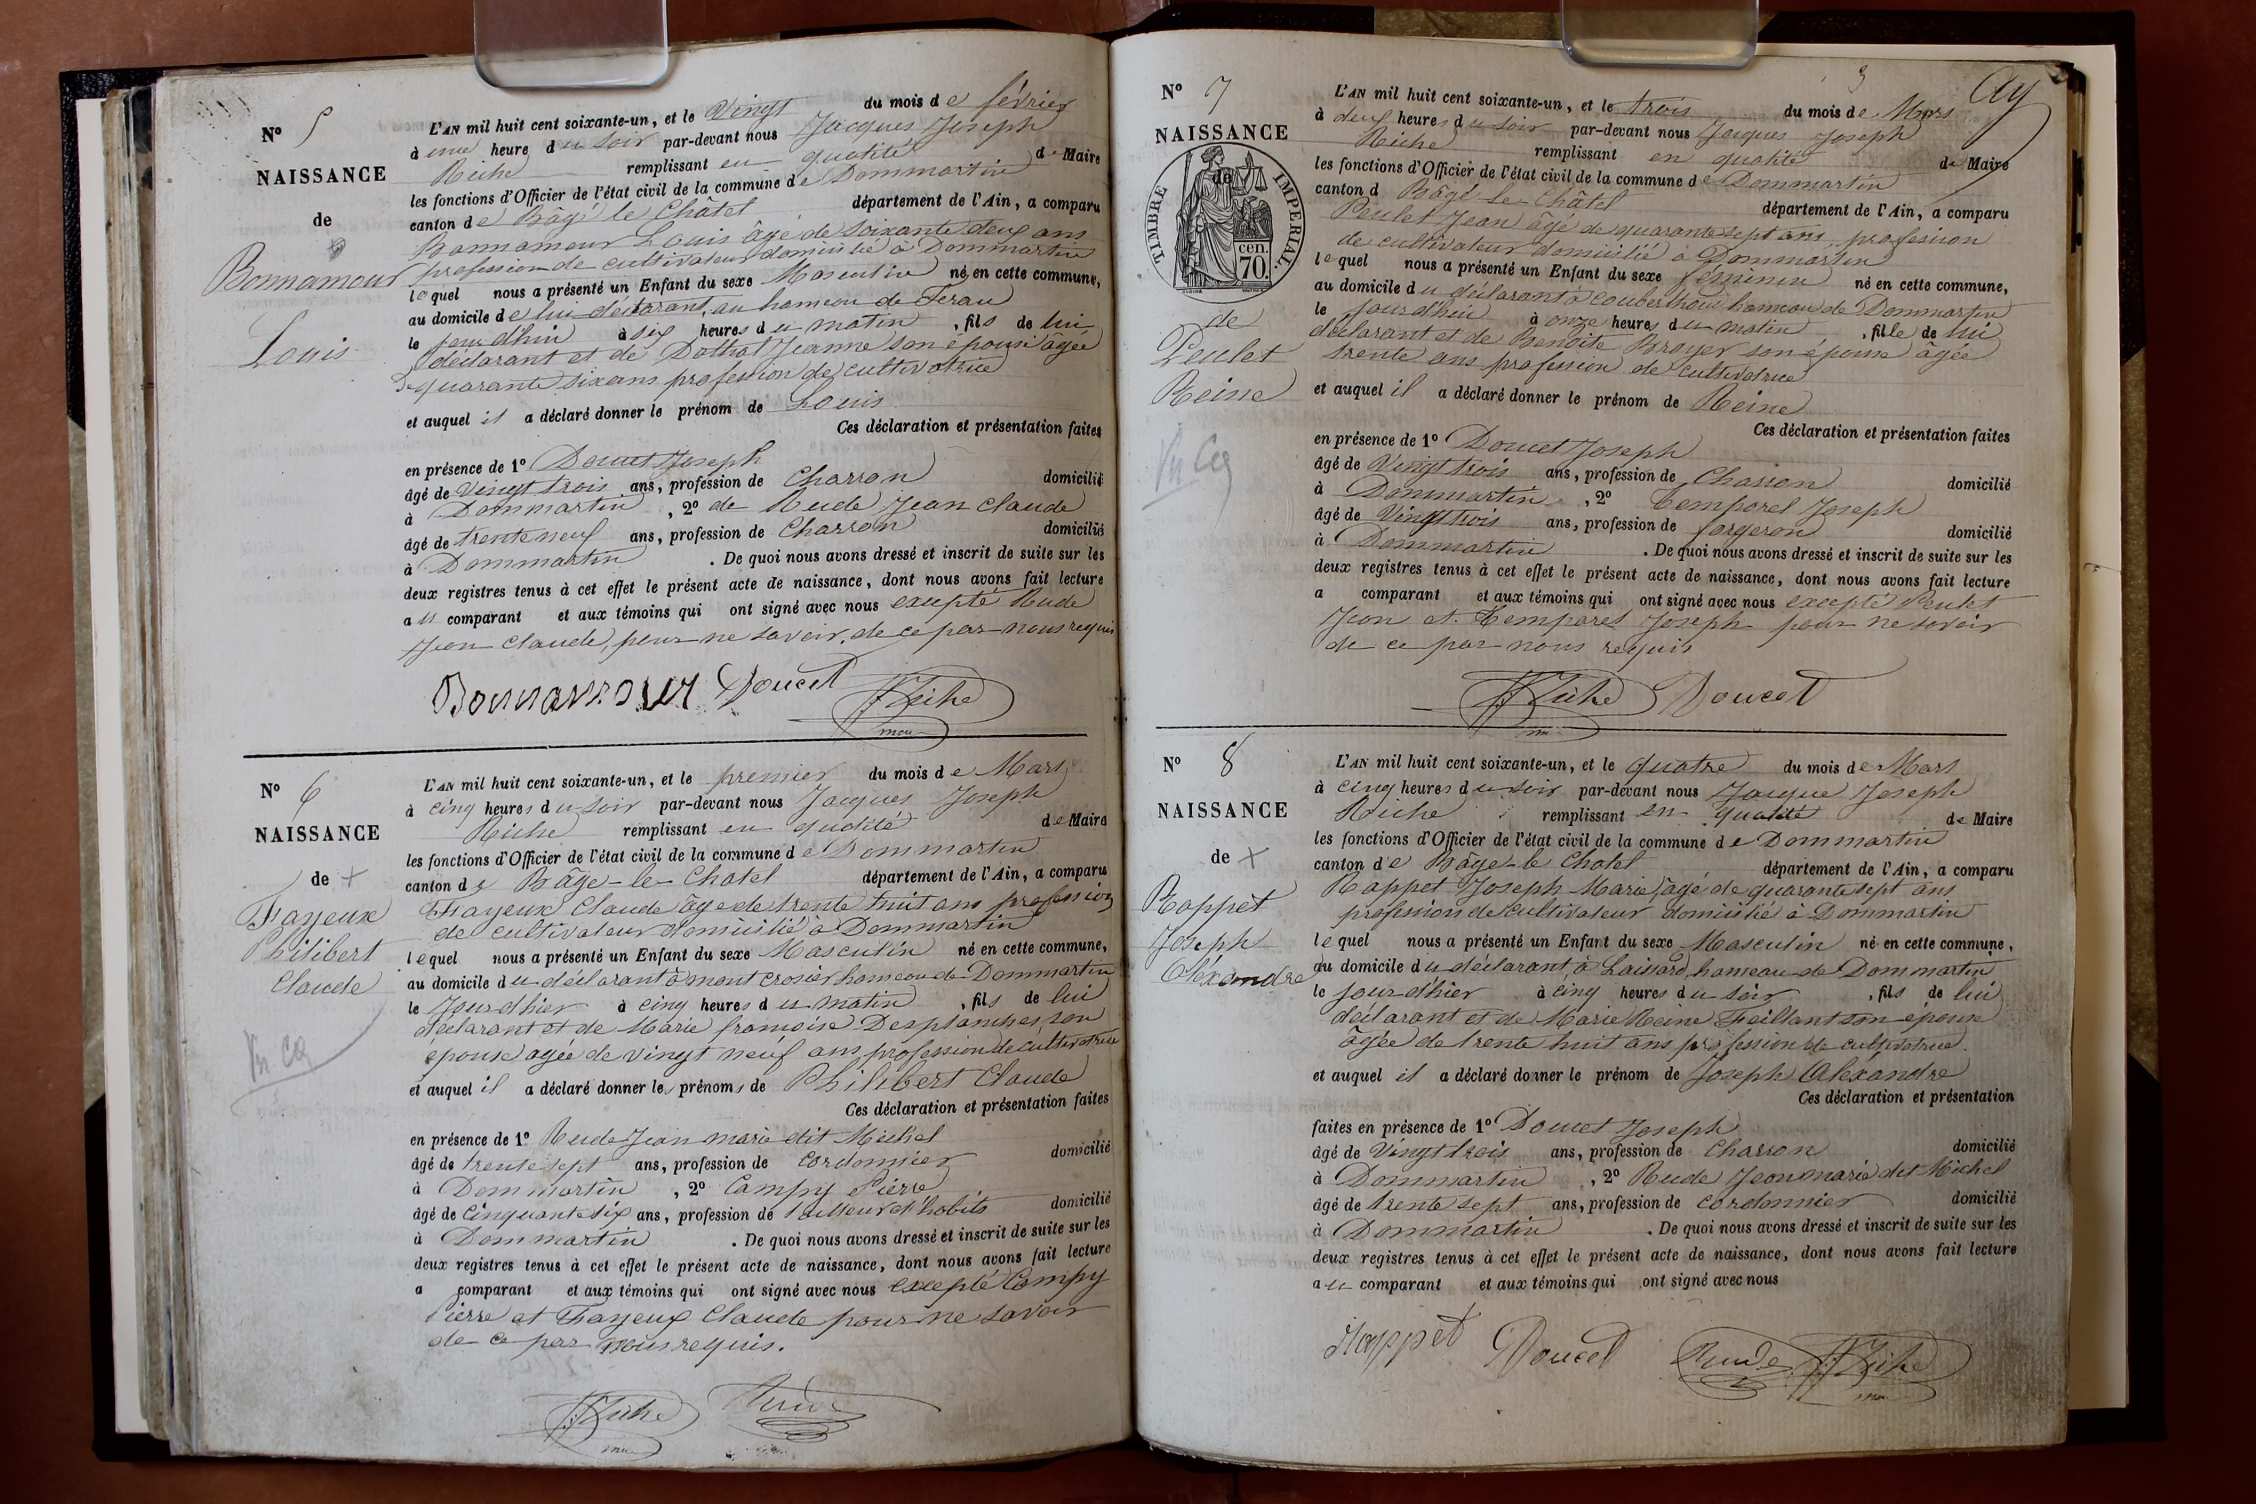 N° 5
NAISSANCE
de
Bonnamour
Louis
L'AN mil huit cent soixante-un, et le Vingt du mois de février
à une heure du soir par-devant nous Jacques Joseph
Riche remplissant en qualité de Maire
les fonctions d'Officier de l'état civil de la commune de Dommartin
canton de Bâgé le Châtel département de l'Ain, a comparu
Bonnamour Louis âgé de soixante deux ans
profession de cultivateur domicilié à Dommartin
lequel nous a présenté un Enfant du sexe Masculin né en cette commune,
au domicile de lui déclarant, au hameau de
le jourd'hui à six heures du matin, fils de lui
déclarant et de Jeanne son épouse âgée
de quarante six ans profession de cultivatrice
et auquel il a déclaré donner le prénom de Louis
Ces déclaration et présentation faites
en présence de 1° Doucet Joseph
âgé de Vingt trois ans, profession de Charron domicilié
à Dommartin, 2° de Rude Jean Claude
âgé de trente neuf ans, profession de Charron domicilié
à Dommartin. De quoi nous avons dressé et inscrit de suite sur les
deux registres tenus à cet effet le présent acte de naissance, dont nous avons fait lecture
au comparant et aux témoins qui ont signé avec nous excepté Rude
Jean Claude, pour ne savoir, de ce par nous requis
Bonnamour Doucet JJ Riche
maire
N° 6
NAISSANCE
de +
Fayeux
Philibert
Claude
Vu
L'AN mil huit cent soixante-un, et le premier du mois de Mars
à cinq heures du soir par-devant nous Jacques Joseph
Riche remplissant en qualité de Maire
les fonctions d'Officier de l'état civil de la commune de Dommartin
canton de Bâgé-le-Chatel département de l'Ain, a comparu
Fayeux Claude âgé de trente huit ans profession
de cultivateur domicilié à Dommartin
lequel nous a présenté un Enfant du sexe Masculin né en cette commune,
au domicile du déclarant à mont crosier hameau de Dommartin
le Jour d'hier à cinq heures du matin, fils de lui
déclarant et de Marie françoise Desplanches son
épouse agée de vingt neuf ans profession de cultivatrice
et auquel il a déclaré donner les prénoms de Philibert Claude
Ces déclaration et présentation faites
en présence de 1° Rude Jean marie dit Michel
âgé de trente sept ans, profession de cordonnier domicilié
à Dommartin, 2° Campy Pierre
âgé de cinquante six ans, profession de tailleur d'habits domicilié
à Dommartin. De quoi nous avons dressé et inscrit de suite sur les
deux registres tenus à cet effet le présent acte de naissance, dont nous avons fait lecture
a comparant et aux témoins qui ont signé avec nous excepté Campy
Pierre et Fayeux Claude pour ne savoir
de ce par nous requis.
JJ Riche Rude
maire
N° 7
NAISSANCE
de
TIMBRE IMPERIAL.
70. cen.
de
Peulet
Reine
Vu
9
L'AN mil huit cent soixante-un, et le trois du mois de Mars
à deux heures du soir par-devant nous Jacques Joseph
Riche remplissant en qualité de Maire
les fonctions d'Officier de l'état civil de la commune de Dommartin
canton d Bâgé-le-Châtel département de l'Ain, a comparu
Peulet Jean âgé de quarante sept ans, profession
de cultivateur domicilié à Dommartin
lequel nous a présenté un Enfant du sexe féminin né en cette commune,
au domicile du déclarant à hameau de Dommartin
le jourd'hui à onze heures du matin, fille de lui
déclarant et de Benoite Broyer son épouse âgée
trente ans profession de cultivatrice
et auquel il a déclaré donner le prénom de Reine
Ces déclaration et présentation faites
en présence de 1° Doucet Joseph
âgé de Vingt trois ans, profession de Charron domicilié
à Dommartin, 2° Temporel Joseph
âgé de Vingt trois ans, profession de forgeron domicilié
à Dommartin. De quoi nous avons dressé et inscrit de suite sur les
deux registres tenus à cet effet le présent acte de naissance, dont nous avons fait lecture
a comparant et aux témoins qui ont signé avec nous excepté Peulet
Jean et Temporel Joseph pour ne savoir
de ce par nous requis
JJ Riche Doucet
maire
N° 8
NAISSANCE
de +
Rappet
Joseph
Aléxandre
L'AN mil huit cent soixante-un, et le quatre du mois de Mars
à cinq heures du soir par-devant nous Jacque Joseph
Riche remplissant en qualité de Maire
les fonctions d'Officier de l'état civil de la commune de Dommartin
canton de Bâgé-le Chatel département de l'Ain, a comparu
Rappet Joseph Marie, âgé de quarante sept ans
profession de cultivateur domicilié à Dommartin
lequel nous a présenté un Enfant du sexe Masculin né en cette commune,
au domicile du déclarant, à hameau de Dommartin
le jour d'hier à cinq heures du soir, fils de lui
déclarant et de Marie Reine Feillant son épouse
âgée de trente huit ans profession de cultivatrice.
et auquel il a déclaré donner le prénom de Joseph Aléxandre
Ces déclaration et présentation
faites en présence de 1° Doucet Joseph
âgé de Vingt trois ans, profession de Charron domicilié
à Dommartin, 2° Rude Jean marie dit Michel
âgé de trente sept ans, profession de cordonnier domicilié
à Dommartin. De quoi nous avons dressé et inscrit de suite sur les
deux registres tenus à cet effet le présent acte de naissance, dont nous avons fait lecture
au comparant et aux témoins qui ont signé avec nous
Rappet Doucet Rude JJ Riche
maire